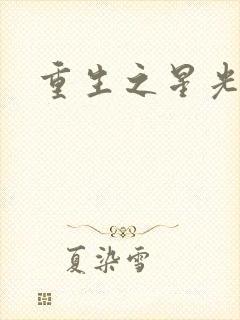 重生之星光
夏染雪